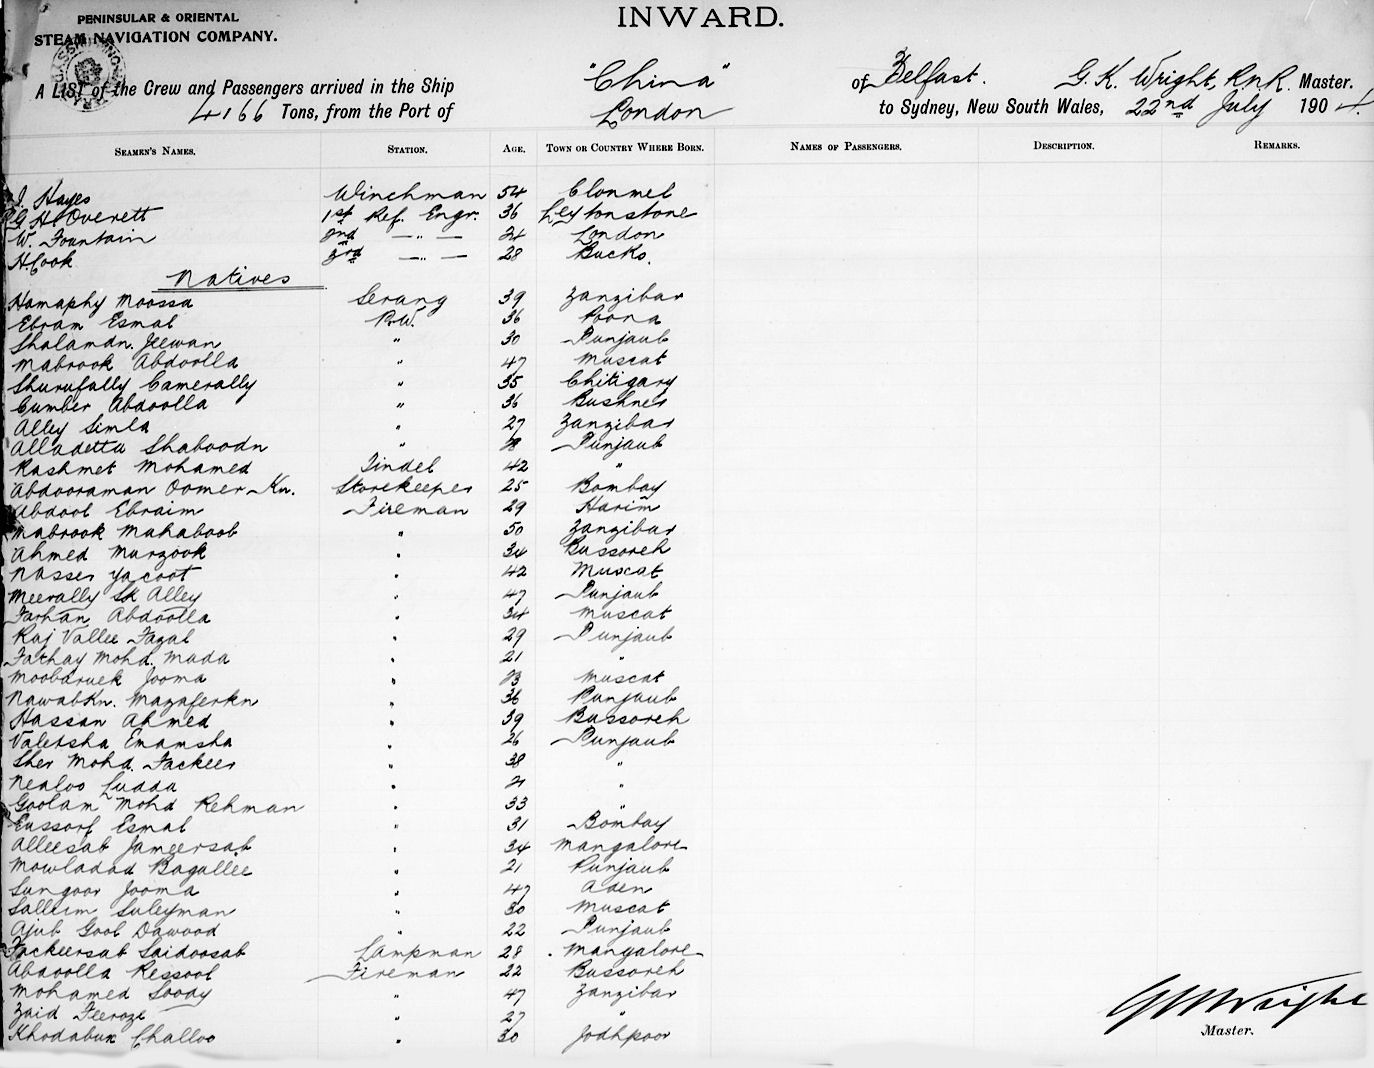 PENINSULAR & ORIENTAL
STEAM NAVIGATION COMPANY.
INWARD.
A LIST of the Crew and Passengers arrived in the Ship "China" of Belfast. G. K. Wright, R.N.R. Master.
4166 Tons, from the Port of London to Sydney, New South Wales, 22nd July 1904.
SEAMEN'S NAMES. STATION. AGE. TOWN OR COUNTRY WHERE BORN. NAMES OF PASSENGERS. DESCRIPTION. REMARKS.
J. Hayes Winchman 54 Clonmel
G H Overett 1st Ref. Engr. 36 Leytonstone
W. Fountain 2nd —"— 24 London
H. Cook 3rd —"— 28 Bucks.
Natives
Hamaphy Moossa Serang 39 Zanzibar
Ebram Esmal P.W. 36 Poona
Shalamdn. Jeewan " 30 Punjaub
Mabrook Abdoolla " 47 Muscat
Shurufally Camerally " 35 Chitigary
Cumber Abdoolla " 36 Bushner
Alley Simla " 27 Zanzibar
Alladetta Shaboodn " Punjaub
Rashmet Mohamed Tindel 42 "
Abdooraman Oomer Kn. Storekeeper 25 Bombay
Abdool Ebraim Fireman 29 Harim
Mabrook Mahaboob " 50 Zanzibar
Ahmed Murzook " 34 Bussoreh
Nasser Yacoot " 42 Muscat
Meerally Sk Alley " 47 Punjaub
Farhan Abdoolla " 34 Muscat
Raj Vallee Fazal " 29 Punjaub
Fathay Mohd. Mada " 21 "
Moobaruek Jooma " Muscat
Nawabkn. Mazaferkn " 36 Punjaub
Hassan Ahmed " 39 Bussoreh
Valetsha Emamsha " 26 Punjaub
Sher Mohd. Fackeer " 38 "
Nealoo Ludda " 21 "
Goolam Mohd Rehman " 33 "
Eussorf Esmal " 31 Bombay
Alleesab Jameersab " 34 Mangalore
Mowladad Bagallee " 21 Punjaub
Sungoor Jooma " 47 Aden
Salleim Suleyman " 30 Muscat
Ajub Gool Dawood " 22 Punjaub
Fackeersab Saidoosab Lampman 28 Mangalore
Abdoolla Ressool Fireman 22 Bussoreh
Mohamed Sooay " 47 Zanzibar
Zaid Feeroze " 27 "
Khodabux Challoo " 30 Jodhpoor
G K Wright
Master.